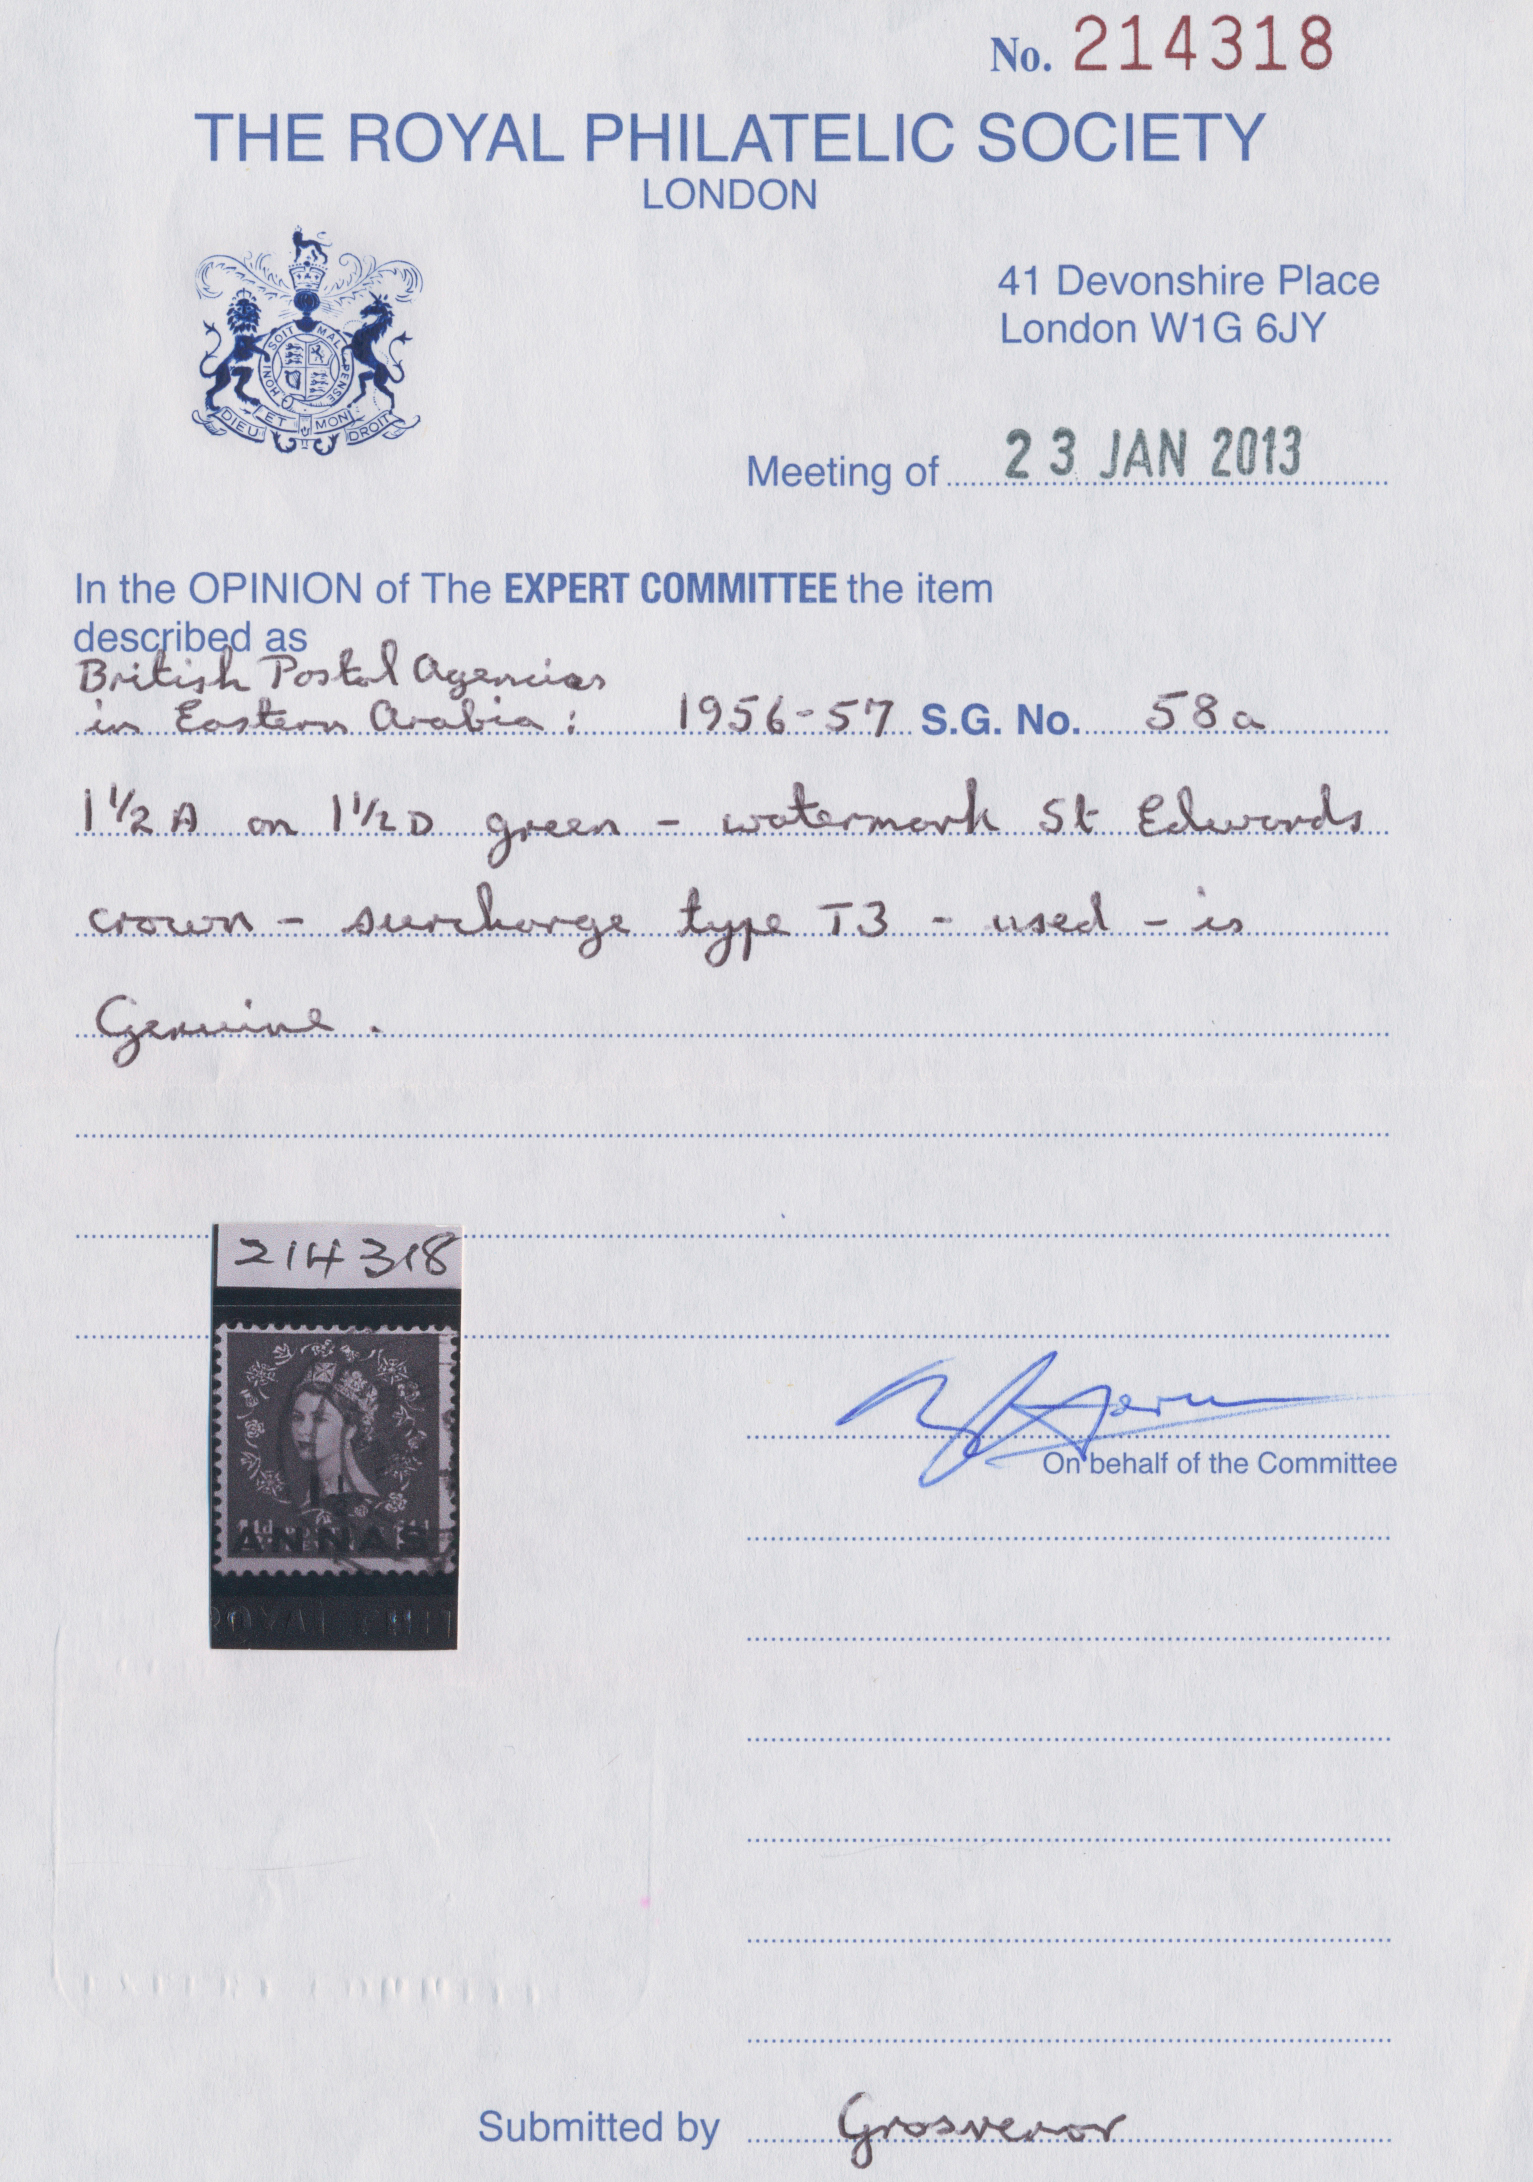 No. 214318
THE ROYAL PHILATELIC SOCIETY
LONDON
SOIT MAL PENSE HONI
DIEU ET MON DROIT
41 Devonshire Place
London W1G 6JY
Meeting of 23 JAN 2013
In the OPINION of The EXPERT COMMITTEE the item
described as
British Postal Agencies
in Eastern Arabia: 1956-57 S.G. No. 58a
1½A on 1½D green - watermark St Edwards
crown - surcharge type T3 - used - is
Genuine.
214318
1½
ANNAS
On behalf of the Committee
Submitted by Grosvenor